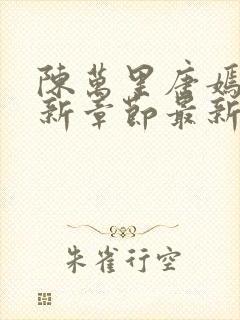 陳萬里唐嫣
新章節最新
朱雀行空